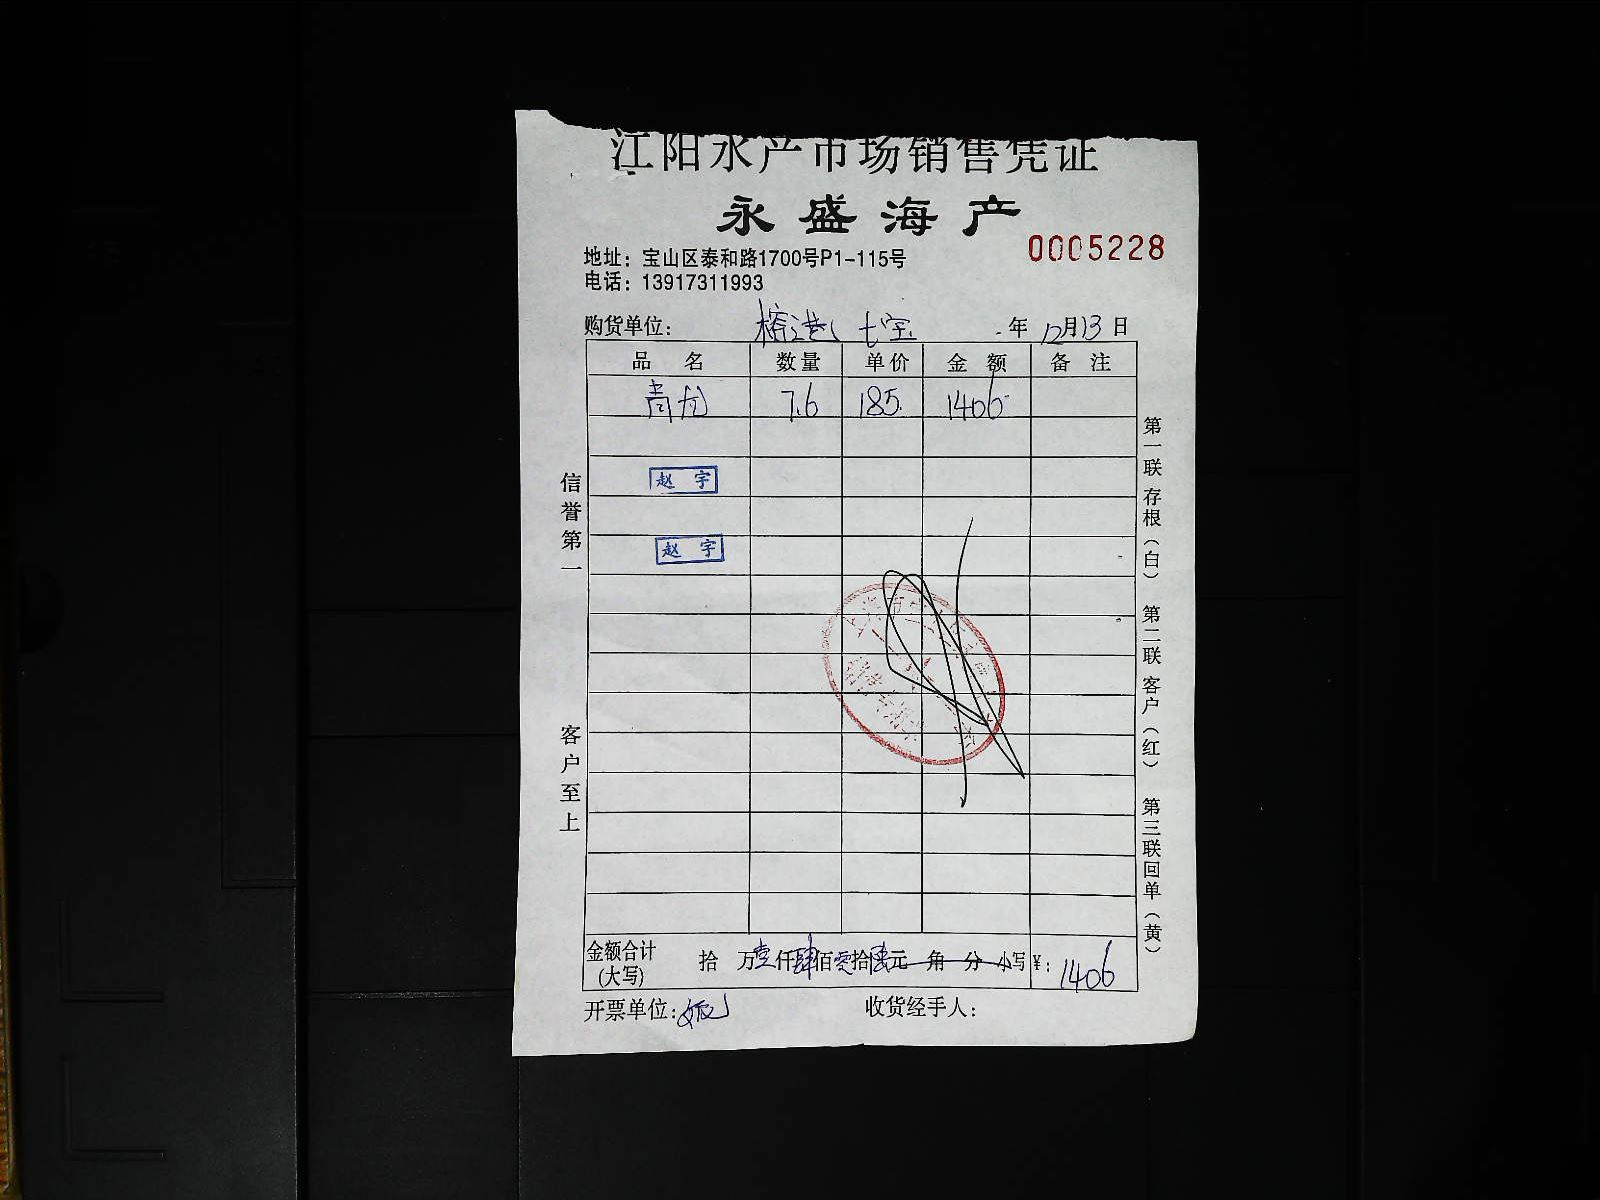 江阳水产市场销售凭证
永盛海产
0005228
地址：宝山区泰和路1700号P1-115号
电话：13917311993
购货单位： 榕港 七宝 年 12月13日
品名 数量 单价 金额 备注
青龙 7.6 185 1406
赵宇
赵宇
信誉第一
客户至上
第一联存根（白） 第二联客户（红） 第三联回单（黄）
金额合计 拾 万壹仟肆佰零拾陆元 角 分 小写¥：1406
(大写)
开票单位： 收货经手人：